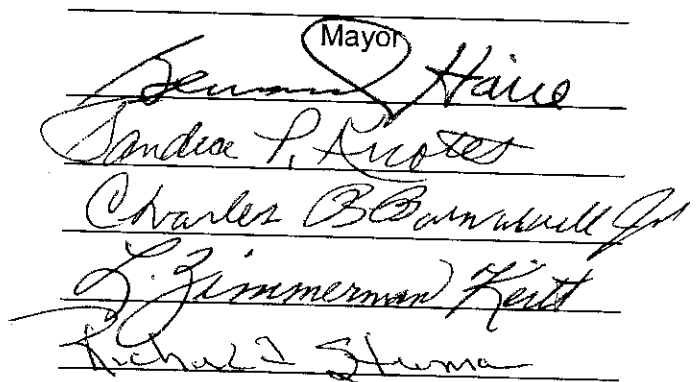 Mayor
Bernard Haire
Sandra P. Knotts
Charles B Barnwell Jr
L. Zimmerman Keitt
Richard F Stroman